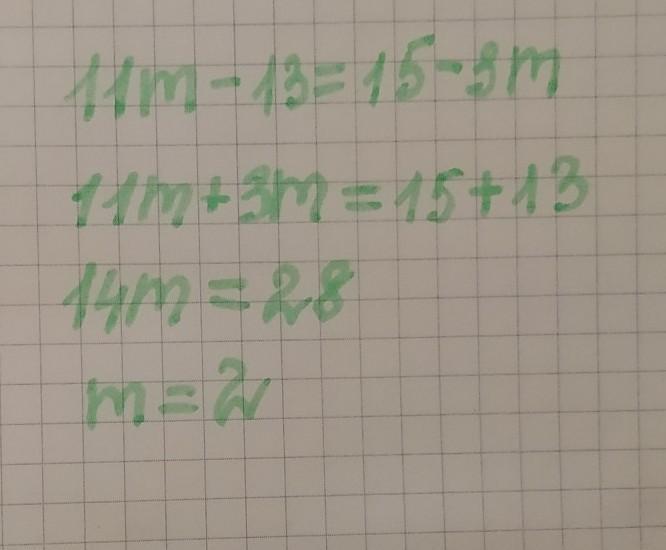 11m-13=15-3m
11m+3m=15+13
14m=28
m=2